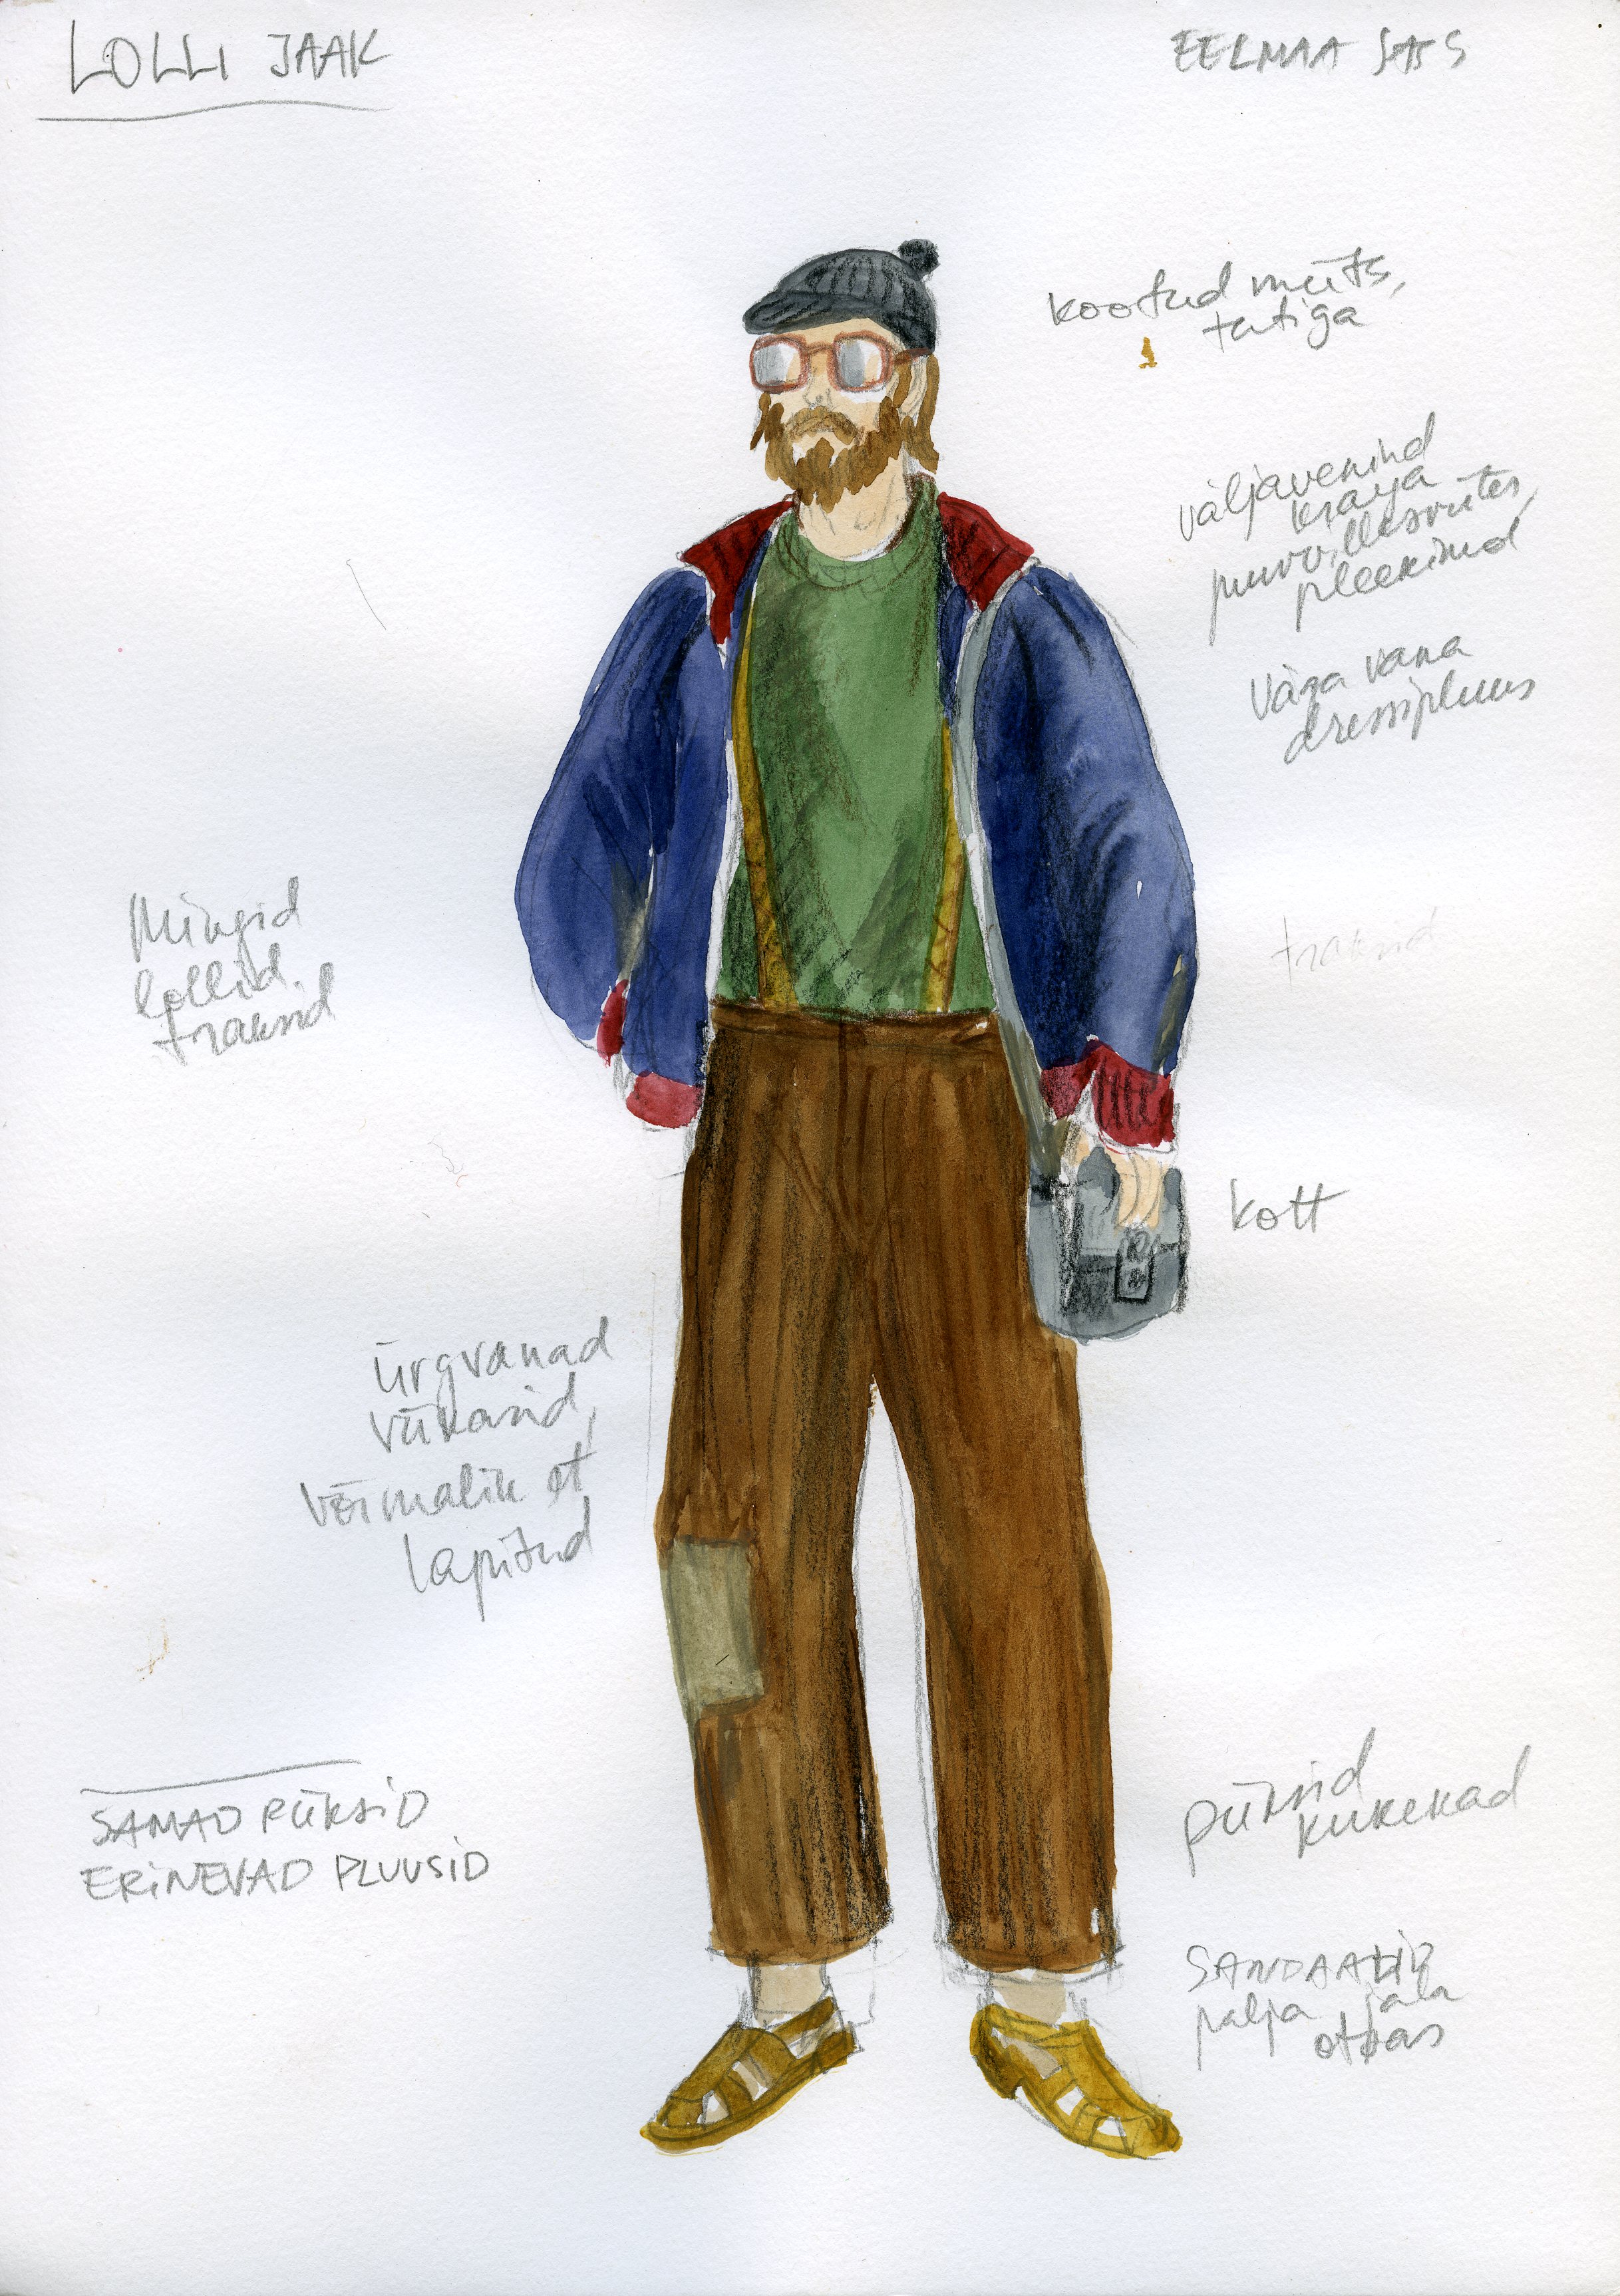 LOLLI JAAK
EELMAA SASS
kootud müts,
tutiga
väljavenind
kraega
puuvillasviiter,
pleekinud
Väga vana
dressipluus
Mingid
lollid
traksid
traksid
kott
ürgvanad
viikarid,
võimalik et
lapitud
SAMAD PÜKSID
ERINEVAD PLUUSID
püksid
kukuvad
SANDAALID
palja jala
otsas